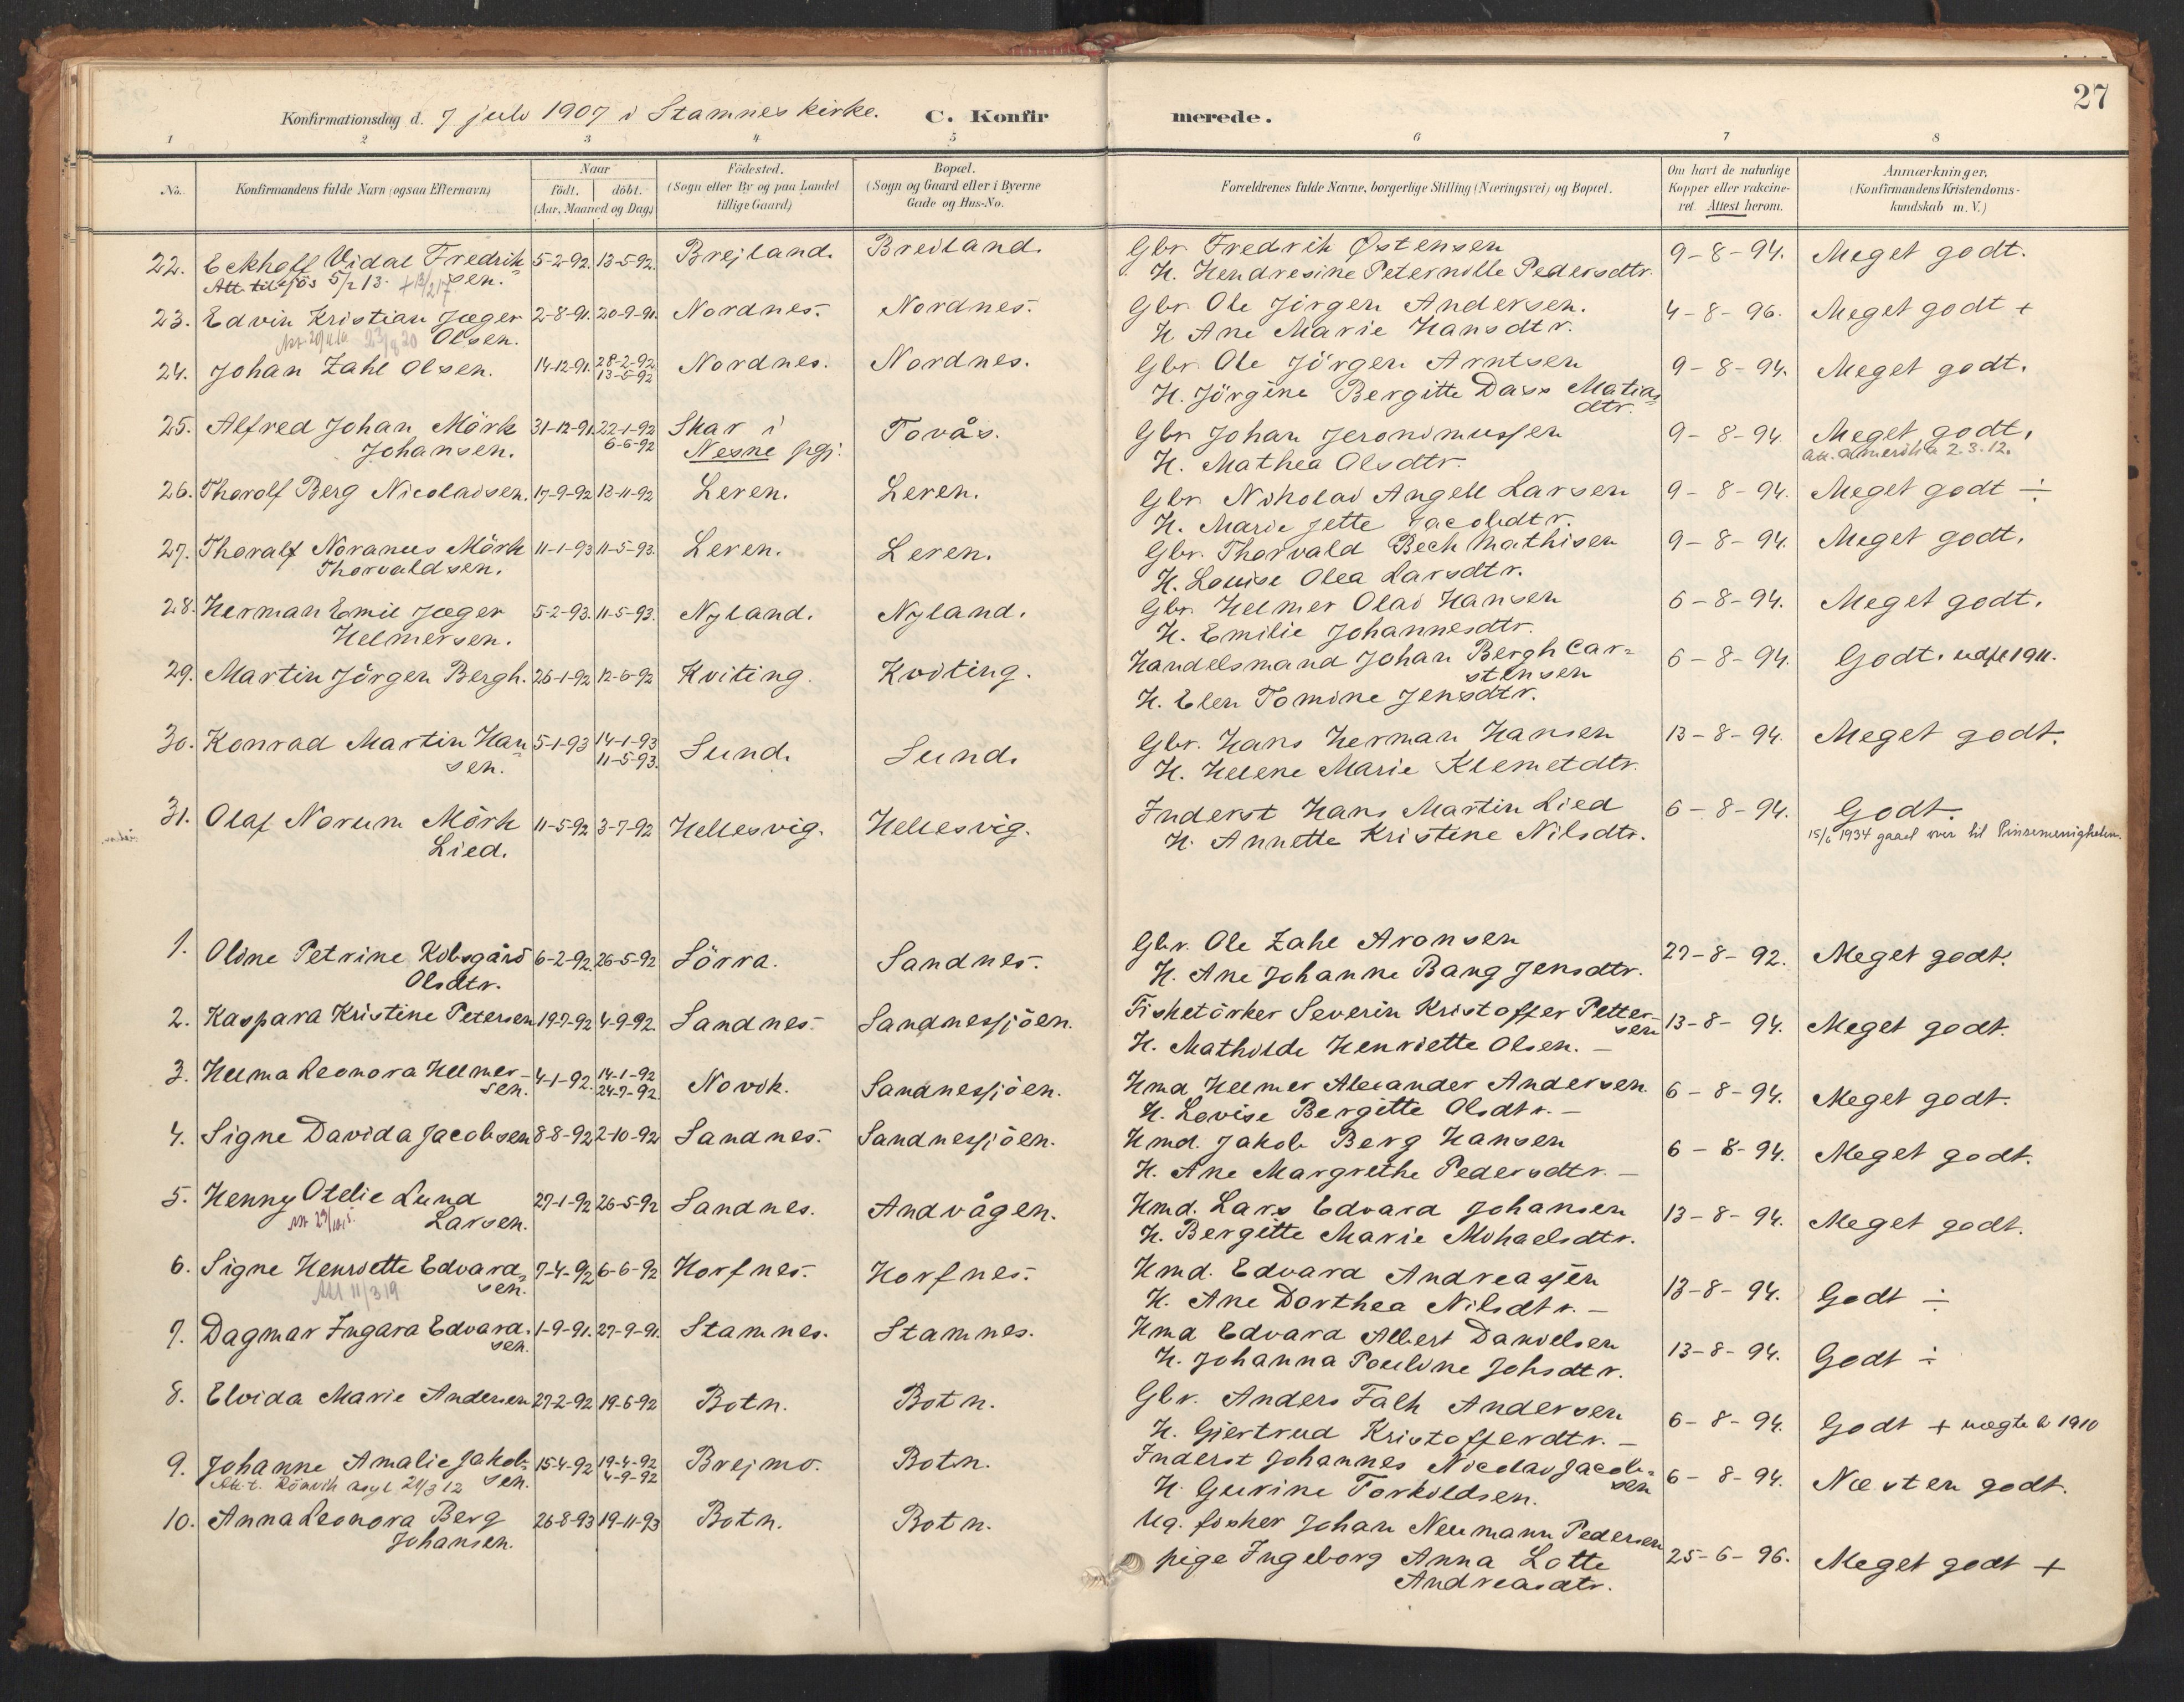 27
Konfirmationsdag d. 7 juli 1907 i Stamnes kirke. C. Konfirmerede.
1 2 3 4 5 6 7 8
No. Konfirmandens fulde Navn (ogsaa Efternavn) Naar födt. döbt. (Aar, Maaned og Dag) Födested. (Sogn eller By og paa Landet tillige Gaard) Bopæl. (Sogn og Gaard eller i Byerne Gade og Hus-No. Forældrenes fulde Navne, borgerlige Stilling (Næringsvei) og Bopæl. Om havt de naturlige Kopper eller vakcineret. Attest herom. Anmærkninger. (Konfirmandens Kristendomskundskab m. V.)
22. Eckhoff Vidal Fredrik= 5-2-92. 13-5-92. Brejland. Breiland. Gbr. Fredrik Østensen 9-8-94. Meget godt.
Att. til sjös 5/2 13. sen. H. Hendresine Peternille Pedersdtr.
23. Edvin Kristian Jæger 2-8-91. 20-9-91. Nordnes. Nordnes. Gbr. Ole Jörgen Andersen. 4-8-96. Meget godt +
Olsen. H. Ane Marie Hansdtr.
24. Johan Zahl Olsen. 14-12-91. 28-2-92 Nordnes. Nordnes. Gbr. Ole Jörgen Arntsen 9-8-94. Meget godt.
13-5-92 H. Jörgine Bergitte Dass Matias
dtr.
25. Alfred Johan Mörk 31-12-91. 22-1-92 Skar i Tovås. Gbr. Johan Jeronimussen 9-8-94 Meget godt.
Johansen. 6-6-92 Nesne pgj. H. Mathea Olsdtr. att. Amerika 2.3.12.
26. Thorolf Berg Nicolaisen. 17-9-92 13-11-92 Leren. Leren. Gbr. Nikolai Angell Larsen 9-8-94. Meget godt ÷
H. Marie Jette Jacobdtr.
27. Thoralf Noranus Mörk 11-1-93 11-5-93. Leren. Leren. Gbr. Thorvald Bech Mathisen 9-8-94. Meget godt.
Thorvaldsen. H. Louise Olea Larsdtr.
28. Herman Emil Jæger 5-2-93. 11-5-93. Nyland. Nyland. Gbr. Helmer Olai Hansen 6-8-94. Meget godt.
Helmersen. H. Emilie Johannesdtr.
29. Martin Jörgen Bergh. 26-1-92 12-6-92 Kviting. Kviting. Handelsmand Johan Bergh Car= 6-8-94. Godt. udfl 1911.
stensen
H. Elen Tomine Jensdtr.
30. Konrad Martin Han= 5-1-93 14-1-93 Sund. Sund. Gbr. Hans Herman Hansen 13-8-94. Meget godt.
sen. 11-5-93. H. Helene Marie Klemetdtr.
31. Olaf Norum Mörk 11-5-92 3-7-92 Hellesvig. Hellesvig. Inderst Hans Martin Lied 6-8-94. Godt.
Lied. H. Annette Kristine Nilsdtr. 15/6 1934 gaaet over til Pinsemenigheten.
1. Oline Petrine Kobsgård 6-2-92. 26-5-92 Sörra. Sandnes. Gbr. Ole Zahl Aronsen 27-8-92. Meget godt.
Olsdtr. H. Ane Johanne Bang Jensdtr.
2. Kaspara Kristine Petersen 19-7-92 4-9-92. Sandnes. Sandnessjöen. Fisketörker Severin Kristoffer Petter- 13-8-94. Meget godt.
sen
H. Mathilde Henriette Olsen. –
3. Helma Leonora Helmer- 4-1-92. 14-1-92 Novik. Sandnessjöen. Hmd. Helmer Alexander Andersen. 6-8-94. Meget godt.
sen. 24-7-92. H. Lovise Bergitte Olsdtr. –
4. Signe Davida Jacobsen 8-8-92 2-10-92 Sandnes. Sandnessjöen. Hmd. Jakob Berg Hansen 6-8-94. Meget godt.
H. Ane Margrethe Pedersdtr. –
5. Henny Otelie Lund 27-1-92 26-5-92 Sandnes. Andvågen. Hmd. Lars Edvard Johansen 13-8-94. Meget godt.
Larsen. H. Bergitte Marie Mihaelsdtr.
6. Signe Henriette Edvard= 7-4-92 6-6-92 Horfnes. Horfnes. Hmd. Edvard Andreassen 13-8-94. Godt ÷
Att 11/3 19 sen. H. Ane Dorthea Nilsdtr. –
7. Dagmar Ingara Edvard- 1-9-91. 27-9-91. Stamnes. Stamnes. Hmd Edvard Albert Danielsen 13-8-94. Godt ÷
sen. H. Johanna Pouline Johsdtr.
8. Elvida Marie Andersen 27-2-92 19-6-92 Botn. Botn. Gbr. Anders Falk Andersen 6-8-94. Godt + 1910
H. Gjertrud Kristofferdtr. –
9. Johanne Amalie Jakob= 15-4-92 19-4-92 Brejmo. Botn. Inderst Johannes Nicolai Jacob= 6-8-94. Næsten godt.
Att. t. Rönvik asyl 21/3 12 sen. 4-9-92 sen
H. Gurine Torkildsen.
10. Anna Leonora Berg 26-8-93 19-11-93 Botn. Botn. Ug. fisker Johan Neumann Pedersen 25-6-96. Meget godt +
Johansen. pige Ingeborg Anna Lotte
Andreasdtr.